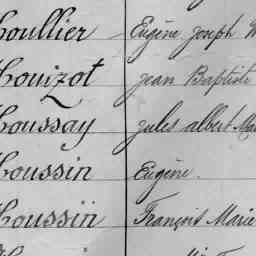 Houllier Eugène Joseph
Houizot Jean Baptiste
Houssay Jules Albert
Houssin Eugène.
Houssin François Marie